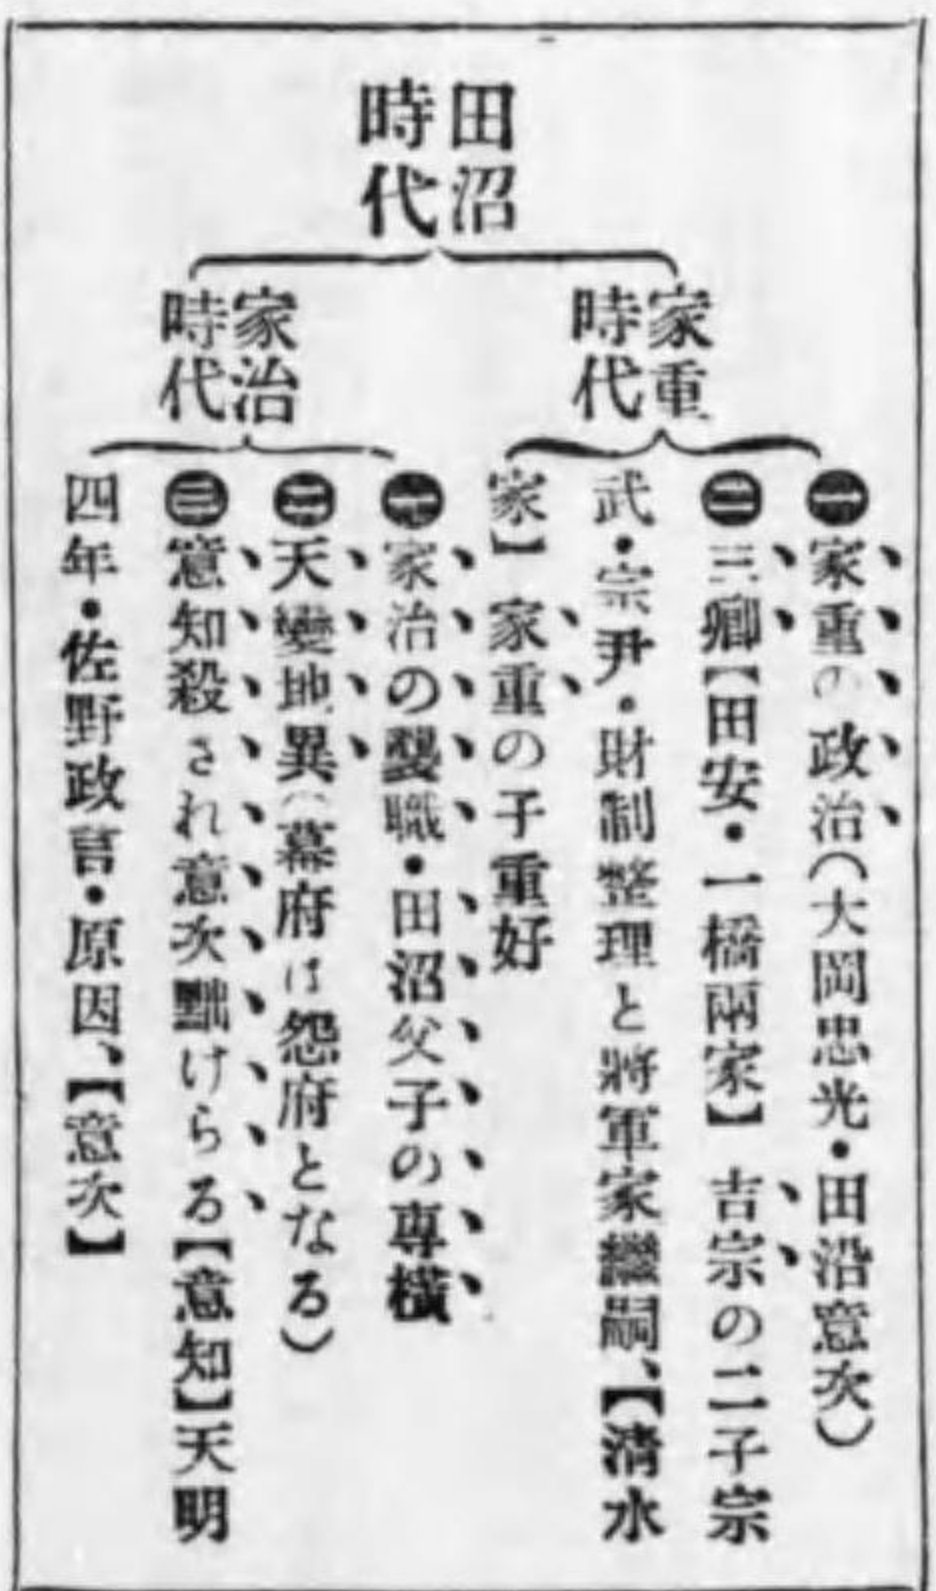 田沼
時代
家重
時代
㊀家重の政治(大岡忠光・田沼意次)
㊁三卿【田安・一橋兩家】 吉宗の二子宗
武・宗尹・財制整理と將軍家繼嗣、【清水
家】 家重の子重好
家治
時代
㊀家治の襲職・田沼父子の專橫
㊁天變地異(幕府は怨府となる)
㊂意知殺され意次黜けらる【意知】天明
四年・佐野政言・原因、【意次】